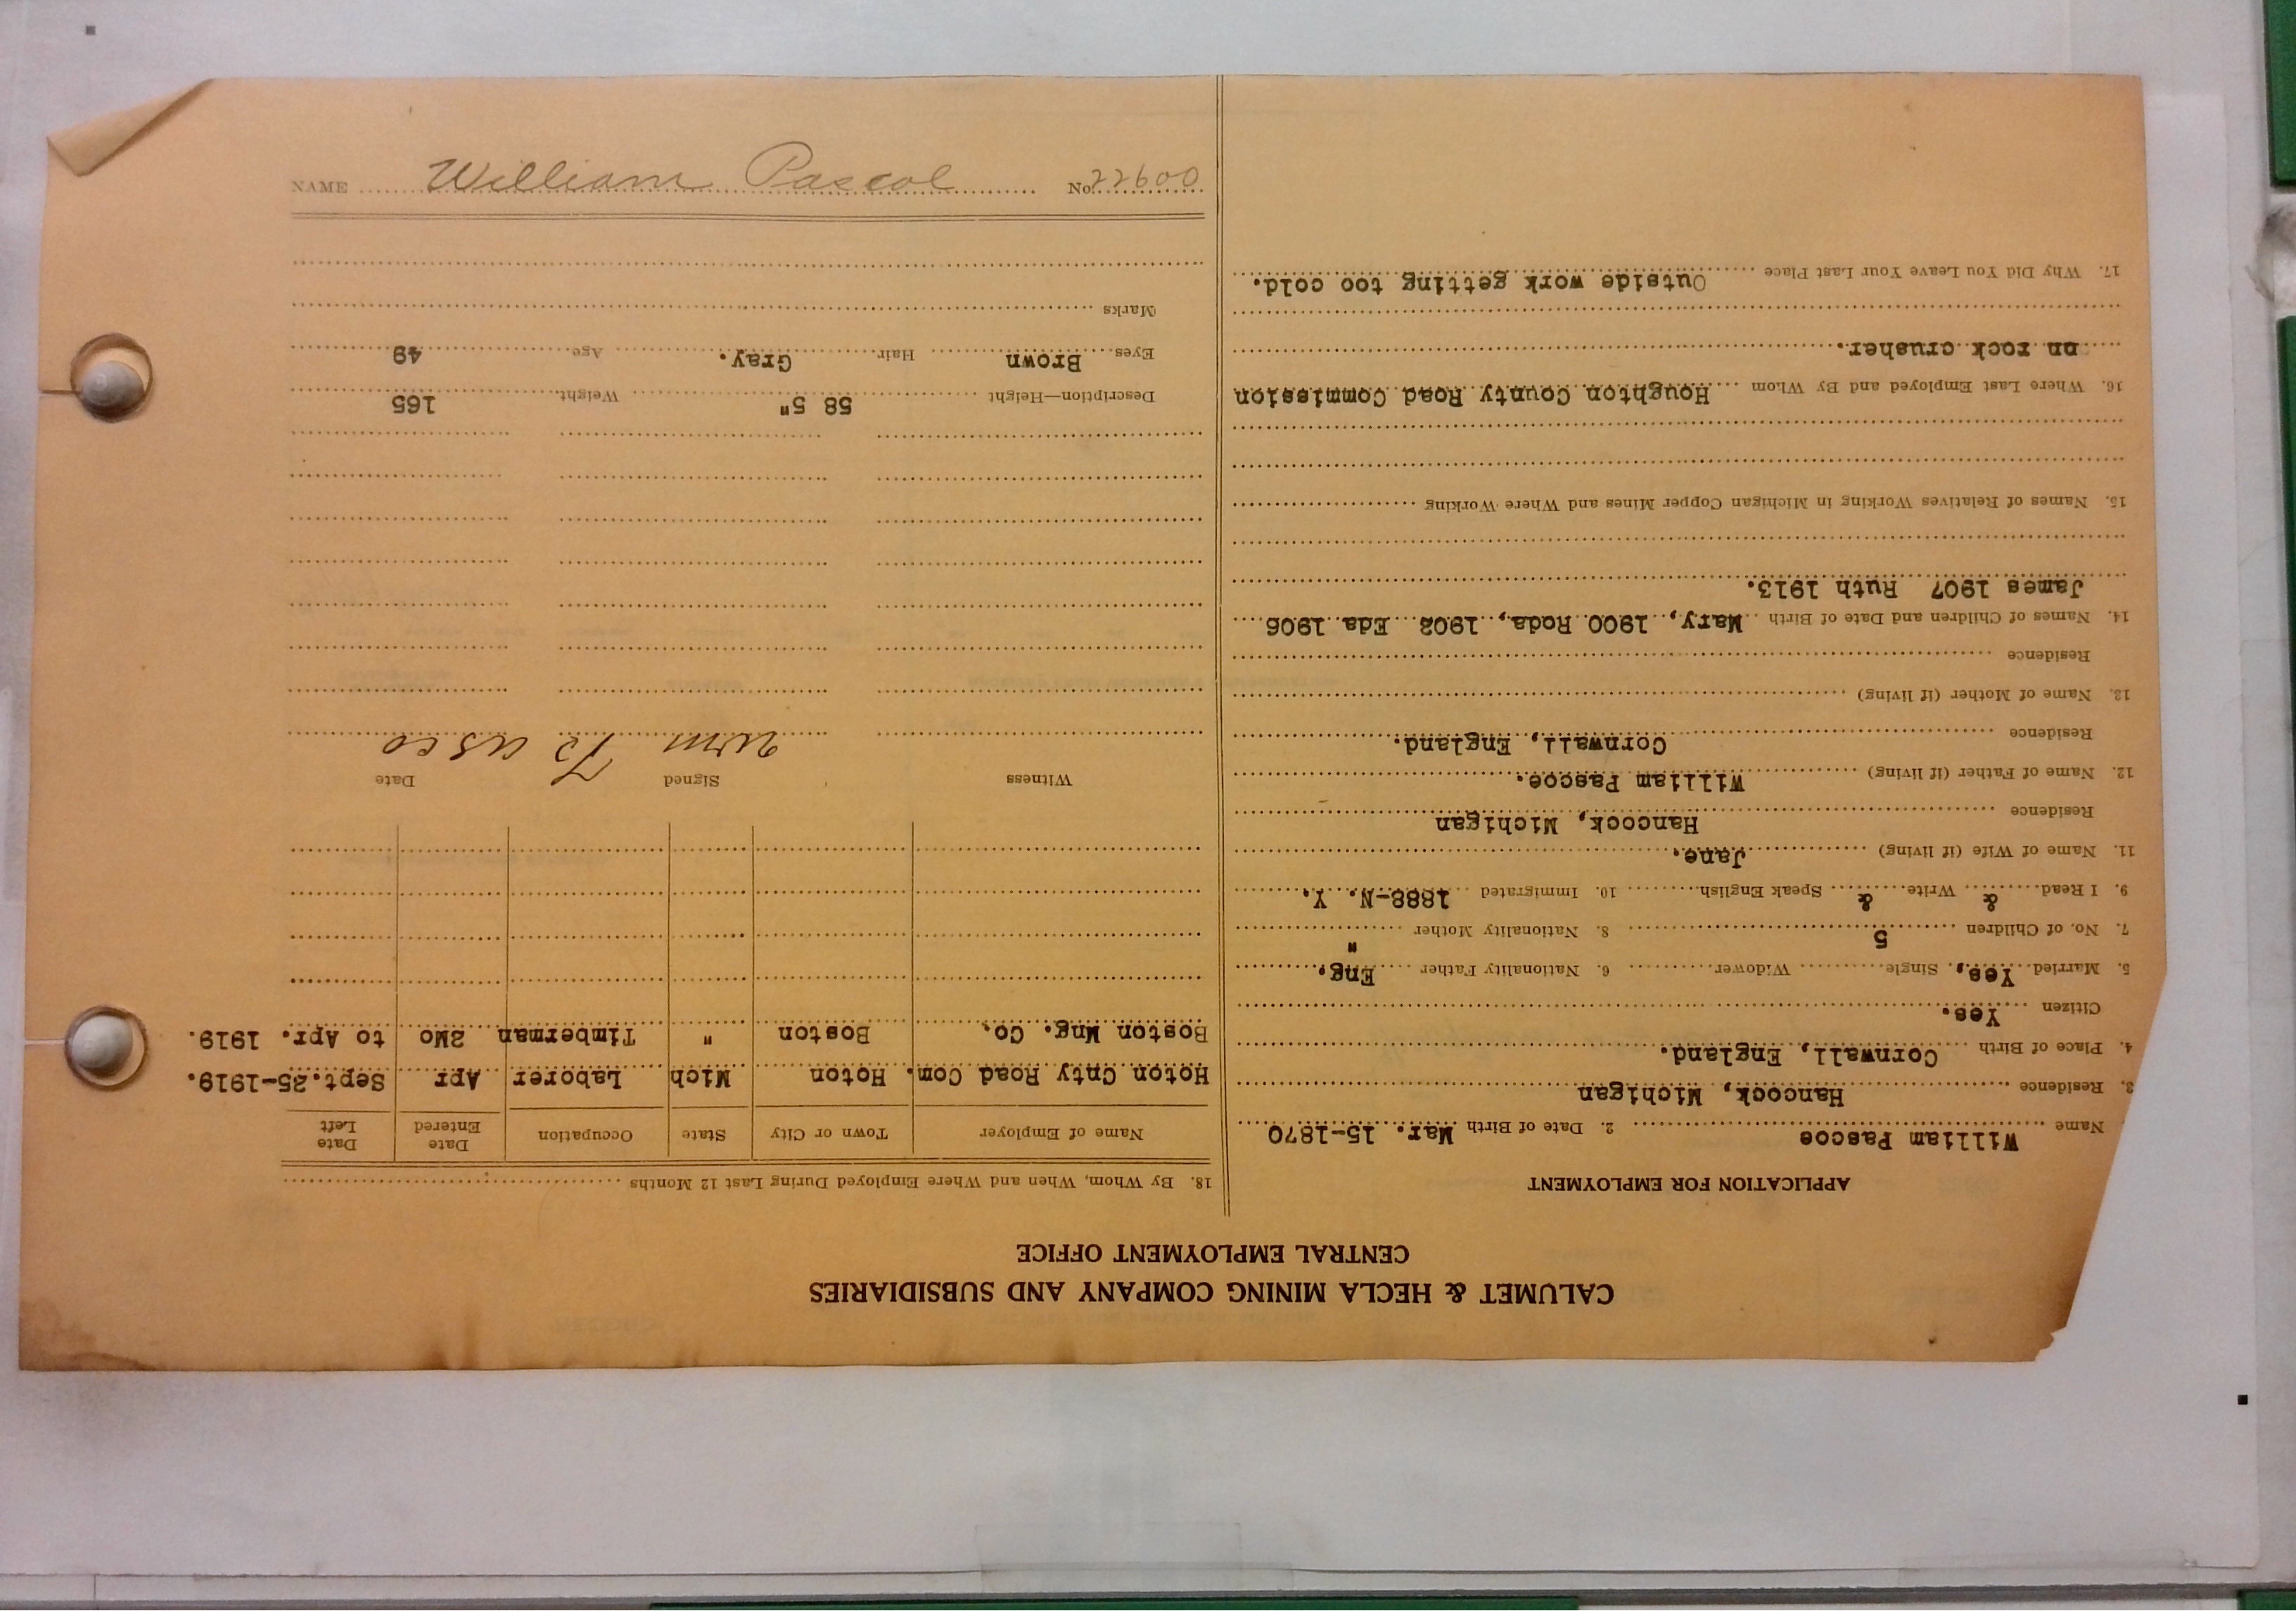 CALUMET & HECLA MINING COMPANY AND SUBSIDIARIES
CENTRAL EMPLOYMENT OFFICE
APPLICATION FOR EMPLOYMENT
Name William Pascoe 2. Date of Birth Mar. 15-1870
3. Residence Hancock, Michigan
4. Place of Birth Cornwall, England.
Citizen Yes.
5. Married Yes, Single Widower 6. Nationality Father Eng.
7. No. of Children 5 8. Nationality Mother "
9. I Read & Write & Speak English 10. Immigrated 1888-N. Y.
11. Name of Wife (if living) Jane.
Residence Hancock, Michigan
12. Name of Father (if living) William Pascoe.
Residence Cornwall, England.
13. Name of Mother (if living)
Residence
14. Names of Children and Date of Birth Mary, 1900 Roda, 1902 Eda 1906
James 1907 Ruth 1913.
15. Names of Relatives Working in Michigan Copper Mines and Where Working
16. Where Last Employed and By Whom Houghton County Road Commission
on rock crusher.
17. Why Did You Leave Your Last Place Outside work getting too cold.
18. By Whom, When and Where Employed During Last 12 Months
Name of Employer Town or City State Occupation Date Entered Date Left
Hoton Cnty Road Com. Hoton Mich Laborer Apr Sept.25-1919.
Boston Mng. Co. Boston " Timberman 2Mo to Apr. 1919.
Witness Signed Date
Wm Pasco
Description—Height 58 5" Weight 165
Eyes Brown Hair Gray. Age 49
Marks
NAME William Pascoe No. 22600